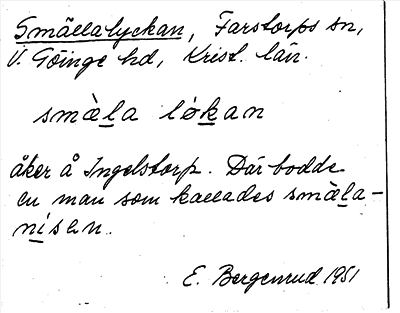 Smällalyckan, Farstorps sn,
V. Göinge hd, Krist. län.
smὰl̲a lỏk̲an
åker å Ingelstorp. Där bodde
en man som kallades smὰl̲a-
ni̲sen.
E. Bergenrud 1951